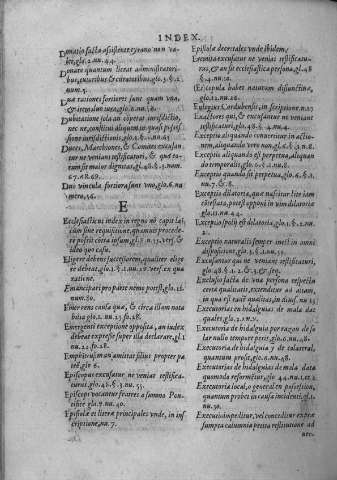 INDEX.
Donatio facta assistente tyrano non va-
let, glo. 2. nu. 44.
Donare quantum liceat administratori-
bus, ciuitatibus & ciuitatibus, glo. 3. §. 2.
num. 5.
Duæ rationes fortiores sunt quam vna,
& ictualum iuga, glo. 6. nu. 58.
Dubitatione sola an cõpetat iurisdictio,
nec ne, constitui aliquem in quasi posses-
sione iurisdictionis, glo. 9. §. 1. nu. 25.
Duces, Marchiones, & Comites excusan-
tur ne veniant testificaturi, & quæ ea-
rum sit maior dignitas, gl. 48. §. 3. num.
67. 68. 69.
Duo vincula fortiora sunt vno, glo. 6. nu
mero, 56.
E
Ecclesiasticus iudex in regno nõ capit lai-
cum sine requisitione, quamuis procede-
re possit citra ipsam, gl. 7. n. 15. vers. &
ideo quo casu.
Eligere debens successorem, qualiter elige
re debeat, glo. 1. §. 1. nu. 12. vers. ex qua
ratione.
Emancipari pro parte nemo potest, glo. 18.
num. 80.
Emergens causa quæ, & circa illam nota
bilia glo. 2. nu. 25. fo. 28.
Emergenti exceptione opposita, an iudex
debeat expresse super illa declarare, gl. 1
nu. 22. fo. 28.
Emphyteusim an amittat filius propter pa
trē, glo. 6.
Episcopus excusatur ne veniat testifica-
turus, glo. 48. §. 3. nu. 55.
Episcopi vocantur fratres a summo Pon-
tifice gl. 7. nu. 40.
Epistolæ et literæ principales vnde, in ins
criptione, nu. 7.
Epistolæ decretales vnde ibidem.
Eremita excusatur ne veniat testificatu-
rus, & an sit ecclesiastica persona, gl. 48
§. 4. nu. 10.
Episcopula habet naturam disiunctiua,
glo. 12. nu. 28.
Eulogius Cordubensis, in scriptione. nu. 5
Exactores qui, & excusantur ne veniant
testificaturi, glo. 48. §. 4. nu. 4.
Exceptio aliquando conuertitur in actio-
nem, aliquando vero non, glo. 8. §. 3. nu. 8
Exceptio aliquando est perpetua, aliquan
do temporalis, ibidem.
Exceptio quando sit perpetua, glo. 4. §. 1
nu. 7. & 8.
Exceptio dilatoria, quæ nascitur lite iam
cõtestata, potest opponi in vim dilatoria
glo. 11. nu. 44.
Exceptio spolii est dilatoria, glo. 1. §. 1. nu.
2.
Exceptio naturalis semper inest in omni
dispositione, glo. 3. §. 1. nu. 31.
Excusantur qui ne veniant testificaturi,
glo. 48. §. 1. 2. & 3. & seq.
Exclusio facta de vna persona respectu
certæ qualitatis, extenditur ad aliam,
in qua est talis qualitas, in dinst. nu. 13
Executoria de hidalguia de mala dat
quales, glo. 2. in v.
Executoria de hidalguia por razon de so
lar nullo tempore perit, glo. 6. nu. 28.
Executoria de hidalguia y de catastral,
quantum prosit, glo. 6. nu. 48.
Executorias de hidalguias de mala data
quomodo reformẽtur, glo. 44. nu. 1. et 2
Executoria local, o general en possession,
quantum probet in causa incidenti, gl. 1.
nu. 36.
Executio in petitur, vel conceditur expræ
sumpta calumnia petitæ restitutione ad
uer.